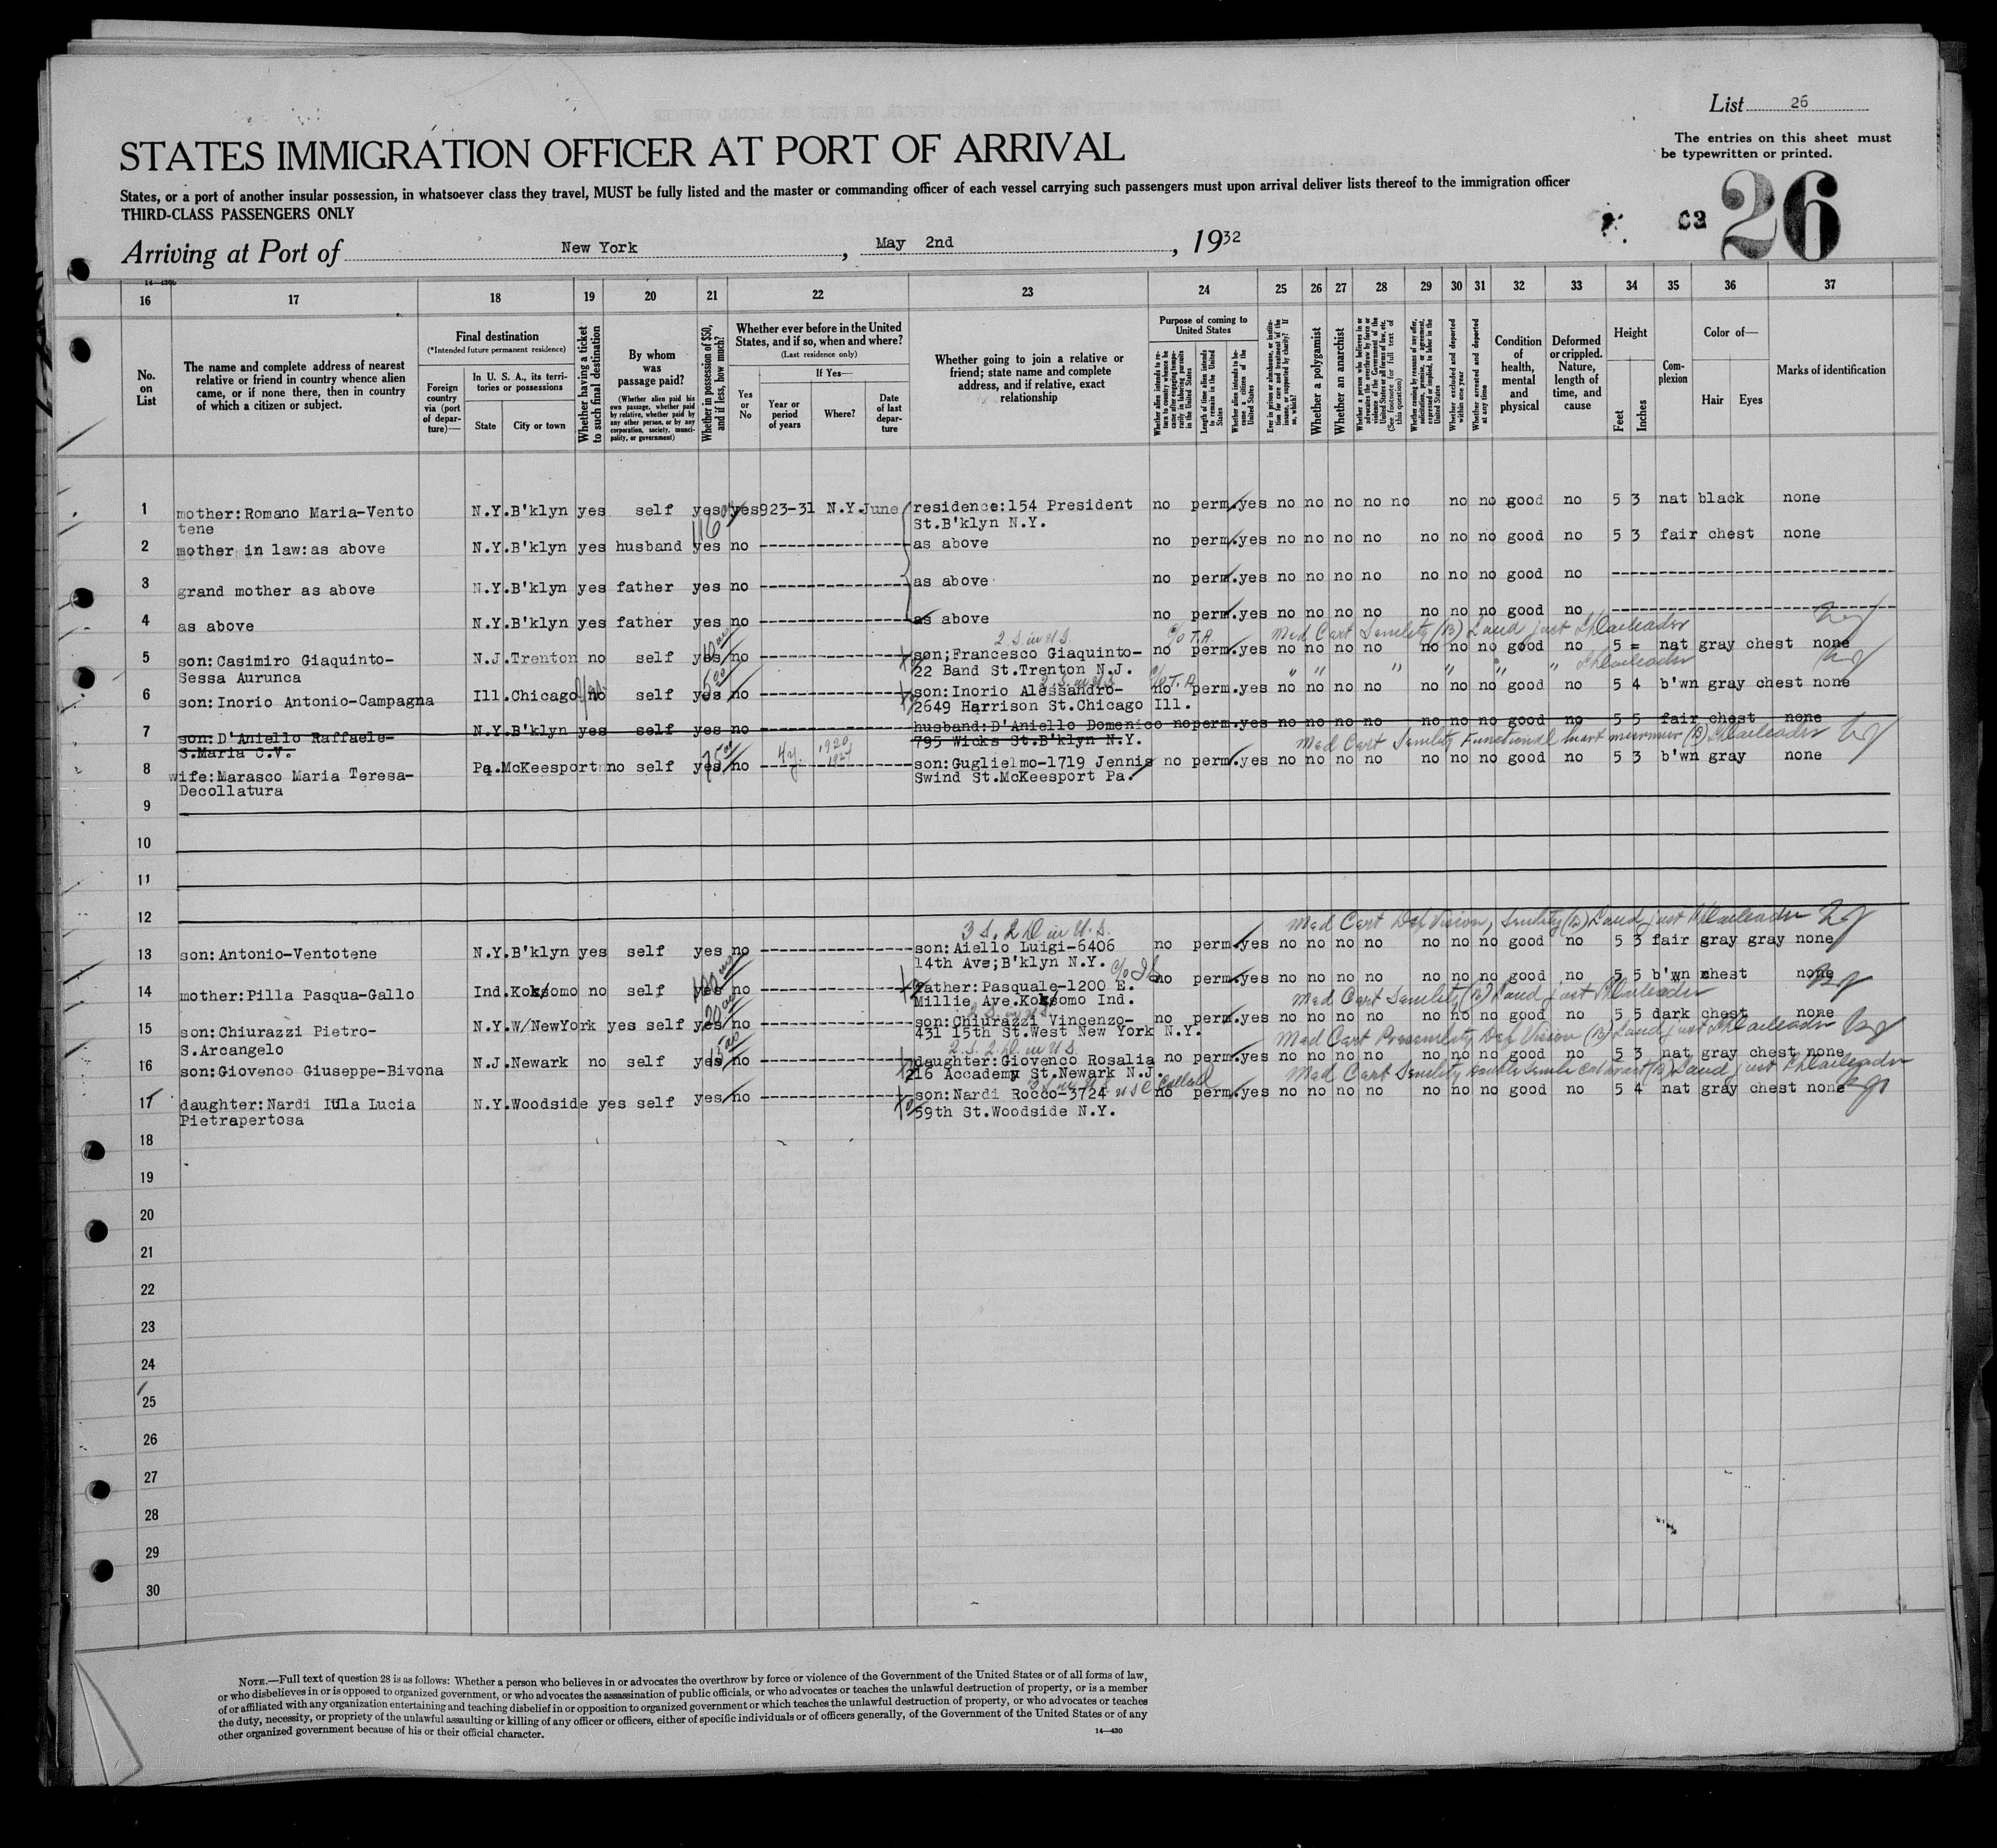 List 26
The entries on this sheet must
be typewritten or printed.
STATES IMMIGRATION OFFICER AT PORT OF ARRIVAL
States, or a port of another insular possession, in whatsoever class they travel, MUST be fully listed and the master or commanding officer of each vessel carrying such passengers must upon arrival deliver lists thereof to the immigration officer
THIRD-CLASS PASSENGERS ONLY
C3 26
Arriving at Port of New York, May 2nd, 1932
14—430b
16 17 18 19 20 21 22 23 24 25 26 27 28 29 30 31 32 33 34 35 36 37
No. on List
The name and complete address of nearest relative or friend in country whence alien came, or if none there, then in country of which a citizen or subject.
Final destination
(*Intended future permanent residence)
Foreign country via (port of departure)—
In U. S. A., its territories or possessions
State
City or town
Whether having a ticket to such final destination
By whom was passage paid?
(Whether alien paid his own passage, whether paid by relative, whether paid by any other person, or by any corporation, society, municipality, or government)
Whether in possession of $50, and if less, how much?
Whether ever before in the United States, and if so, when and where?
(Last residence only)
Yes or No
If Yes—
Year or period of years
Where?
Date of last departure
Whether going to join a relative or friend; state name and complete address, and if relative, exact relationship
Purpose of coming to United States
Whether alien intends to return to country whence he came after engaging temporarily in laboring pursuits in the United States
Length of time alien intends to remain in the United States
Whether alien intends to become a citizen of the United States
Ever in prison or almshouse, or institution for care and treatment of the insane, or supported by charity? If so, which?
Whether a polygamist
Whether an anarchist
Whether a person who believes in or advocates the overthrow by force or violence of the Government of the United States or all forms of law, etc. (See footnote for full text of this question)
Whether coming by reason of any offer, solicitation, promise, or agreement, expressed or implied, to labor in the United States
Whether excluded and deported within one year
Whether arrested and deported at any time
Condition of health, mental and physical
Deformed or crippled. Nature, length of time, and cause
Height
Feet
Inches
Complexion
Color of—
Hair Eyes
Marks of identification
1 mother:Romano Maria-Vento N.Y. B'klyn yes self yes yes 923-31 N.Y. June residence:154 President no perm. yes no no no no no no no good no 5 3 nat black none
tene St.B'klyn N.Y.
2 mother in law:as above N.Y. B'klyn yes husband yes no as above no perm. yes no no no no no no no good no 5 3 fair chest none
3 grand mother as above N.Y. B'klyn yes father yes no as above no perm. yes no no no no no no no good no
4 as above N.Y. B'klyn yes father yes no as above no perm. yes no no no no no no no good no
2 S. in U.S. c/o T.A. Med Cert Senility (B)
5 son:Casimiro Giaquinto- N.J. Trenton no self yes no son;Francesco Giaquinto- no perm. yes no no no no no no no good no 5 = nat gray chest none
Sessa Aurunca 22 Band St.Trenton N.J. " " " " " "
2 S. in U.S. c/o T.A.
6 son:Inorio Antonio-Campagna Ill. Chicago no self yes no son:Inorio Alessandro- no perm. yes no no no no no no no good no 5 4 b'wn gray chest none
2649 Harrison St.Chicago Ill.
7 son:D'Aniello Raffaele- N.Y. B'klyn yes self yes no husband:D'Aniello Domenico no perm. yes no no no no no no no good no 5 5 fair chest none
S.Maria C.V. 795 Wicks St.B'klyn N.Y. Med Cert Senility Functional heart murmur (B)
8 wife:Marasco Maria Teresa- Pa. McKeesport no self yes no 4y. 1920 1924 son:Guglielmo-1719 Jennis no perm. yes no no no no no no no good no 5 3 b'wn gray none
Decollatura Swind St.McKeesport Pa.
9
10
11
12
3 S. 2 D. in U.S. Med Cert Def Vision, Senility (B)
13 son:Antonio-Ventotene N.Y. B'klyn yes self yes no son:Aiello Luigi-6406 no perm. yes no no no no no no no good no 5 3 fair gray gray none
14th Ave;B'klyn N.Y.
14 mother:Pilla Pasqua-Gallo Ind. Kokomo no self yes no father:Pasquale-1200 E. no perm. yes no no no no no no no good no 5 5 b'wn chest none
Millie Ave.Kokomo Ind. Med Cert Senility (B)
15 son:Chiurazzi Pietro- N.Y. W/NewYork yes self yes no son:Chiurazzi Vincenzo- no perm. yes no no no no no no no good no 5 5 dark chest none
S.Arcangelo 431 15th St.West New York N.Y. Med Cert Presenility Def Vision (B)
2 S. 2 D. in U.S.
16 son:Giovenco Giuseppe-Bivona N.J. Newark no self yes no daughter:Giovenco Rosalia no perm. yes no no no no no no no good no 5 3 nat gray chest none
216 Accademy St.Newark N.J. Med Cert Senility Double Senile Cataract (B)
17 daughter:Nardi Iula Lucia N.Y. Woodside yes self yes no son:Nardi Rocco-3724 no perm. yes no no no no no no no good no 5 4 nat gray chest none
Pietrapertosa 59th St.Woodside N.Y.
18
19
20
21
22
23
24
25
26
27
28
29
30
NOTE.—Full text of question 28 is as follows: Whether a person who believes in or advocates the overthrow by force or violence of the Government of the United States or of all forms of law,
or who disbelieves in or is opposed to organized government, or who advocates the assassination of public officials, or who advocates or teaches the unlawful destruction of property, or is a member
of or affiliated with any organization entertaining and teaching disbelief in or opposition to organized government or which teaches the unlawful destruction of property, or who advocates or teaches
the duty, necessity, or propriety of the unlawful assaulting or killing of any officer or officers, either of specific individuals or of officers generally, of the Government of the United States or of any
other organized government because of his or their official character.
14—430